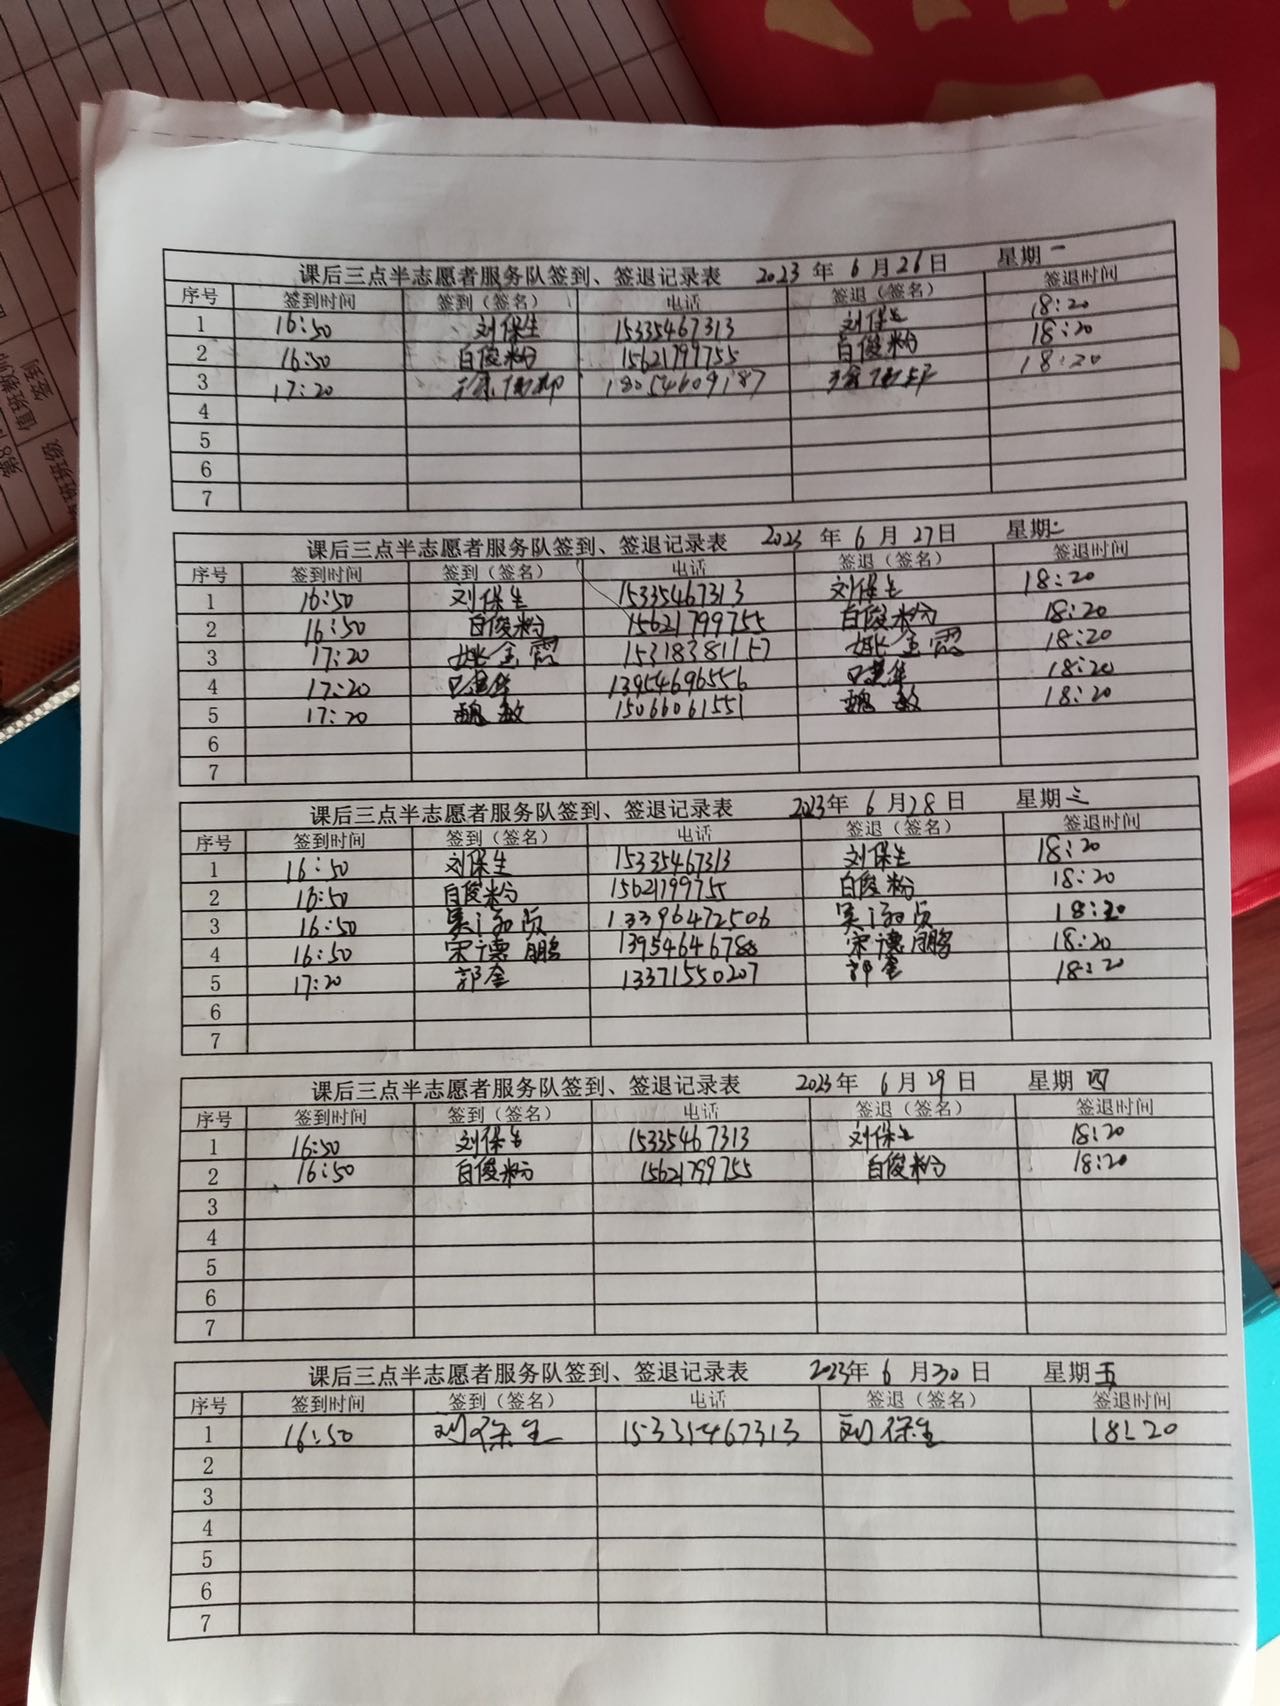 课后三点半志愿者服务队签到、签退记录表 2023 年 6 月 26 日 星期一
序号 签到时间 签到（签名） 电话 签退（签名） 签退时间
1 16:50 刘保生 15335467313 刘保生 18:20
2 16:50 白俊粉 15621799755 白俊粉 18:20
3 17:20 18054609187 18:20
4
5
6
7
课后三点半志愿者服务队签到、签退记录表 2023 年 6 月 27 日 星期二
序号 签到时间 签到（签名） 电话 签退（签名） 签退时间
1 16:50 刘保生 15335467313 刘保生 18:20
2 16:50 白俊粉 15621799755 白俊粉 18:20
3 17:20 姚金霞 15318381157 姚金霞 18:20
4 17:20 13954696556 18:20
5 17:20 魏敏 15066061551 魏敏 18:20
6
7
课后三点半志愿者服务队签到、签退记录表 2023 年 6 月 28 日 星期三
序号 签到时间 签到（签名） 电话 签退（签名） 签退时间
1 16:50 刘保生 15335467313 刘保生 18:20
2 16:50 白俊粉 15621799755 白俊粉 18:20
3 16:50 13396472506 18:20
4 16:50 宋德鹏 13954646788 宋德鹏 18:20
5 17:20 郭奎 13371550207 郭奎 18:20
6
7
课后三点半志愿者服务队签到、签退记录表 2023 年 6 月 29 日 星期四
序号 签到时间 签到（签名） 电话 签退（签名） 签退时间
1 16:50 刘保生 15335467313 刘保生 18:20
2 16:50 白俊粉 15621799755 白俊粉 18:20
3
4
5
6
7
课后三点半志愿者服务队签到、签退记录表 2023 年 6 月 30 日 星期五
序号 签到时间 签到（签名） 电话 签退（签名） 签退时间
1 16:50 刘保生 15335467313 刘保生 18:20
2
3
4
5
6
7